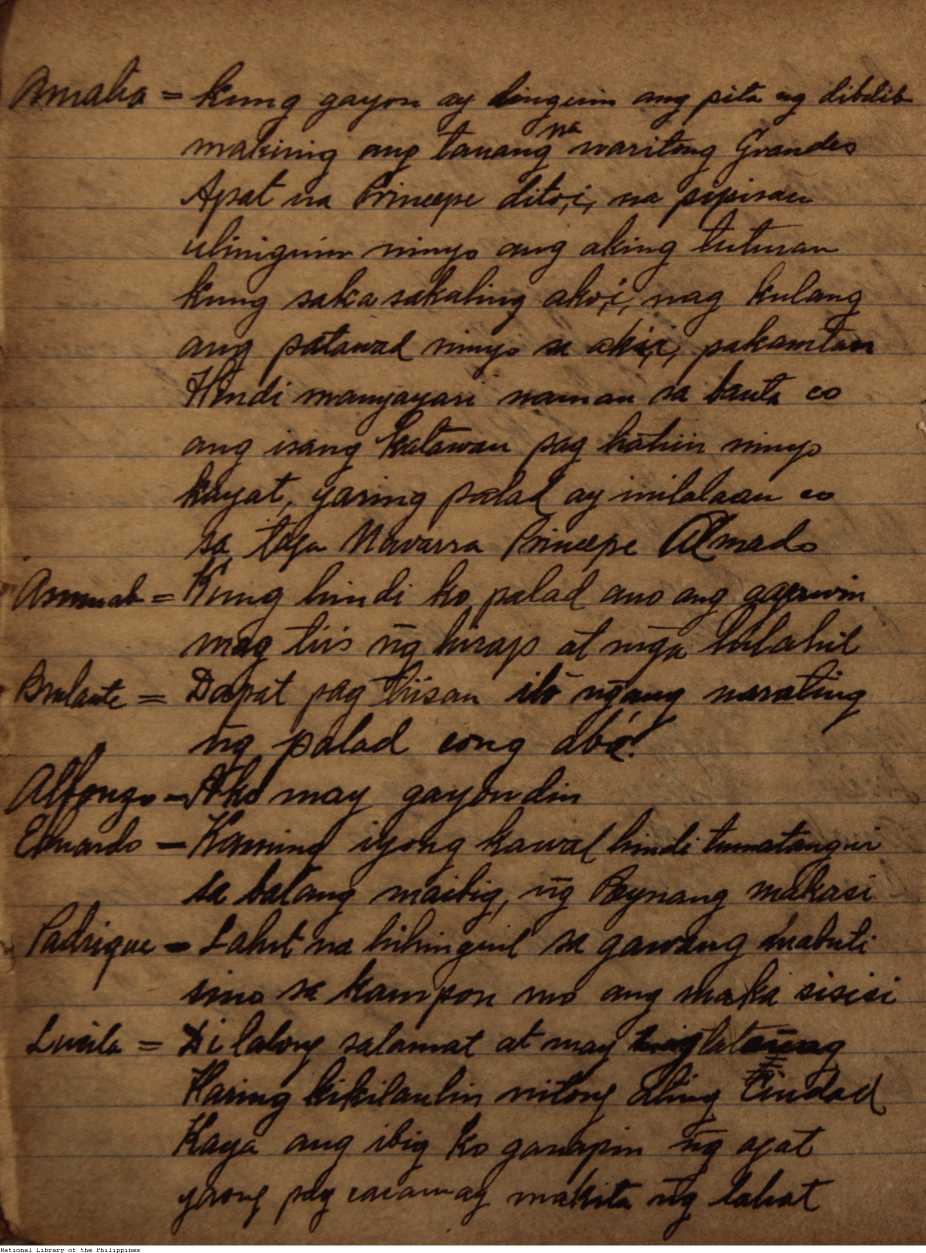 Amalia = Kung gayon ay dinguin ang pita ng dibdib
makinig ang tanang na naritong Grandes
Apat na Principe dito,i, na pipisan
uliniguin ninyo ang aking tuturan
kung saka sakaling ako,i, nag kulang
ang patawad ninyo sa aki,i, pakamtan
Hindi mangyayari naman sa banta co
ang isang katawan pag hatiin ninyo
kayat, yaring palad ay inilalaan co
sa taga Navarra Principe Almado
= Kung hindi ko palad ano ang gagawin
mag tiis ng hirap at mga hilahil
Brulante = Dapat pag tiisan ito ngang narating
ng palad cong abá!
Alfonzo - Ako may gayon din
Eduardo - Kaming iyong kawal hindi tumatangui
sa balang maibig, ng Reynang makasi
Padrique = Lahat na hihinguil sa gawang mabuti
sino sa kampon mo ang maka sisisi
Lucila = Di lalong salamat at may
Haring kikilanlin nitong ating Ciudad
Kaya ang ibig ko ganapin ng agat
yaong pag cacawag makita ng lahat
National Library of the Philippines